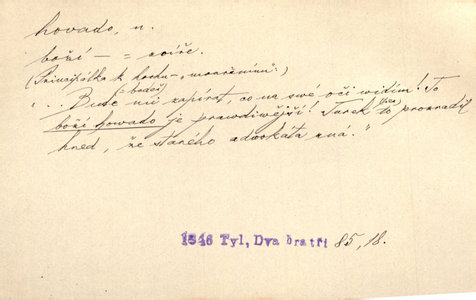 hovado, n.
boží – = zvíře.
(Principálka k
(= badeš)
„ . . Bude mi zapírat, co na své oči widím! To
boží howado je prawdiwější! Turek (pes) to prozradil
hned, že starého advokáta zná."
1546 Tyl, Dva bratři 85, 18.